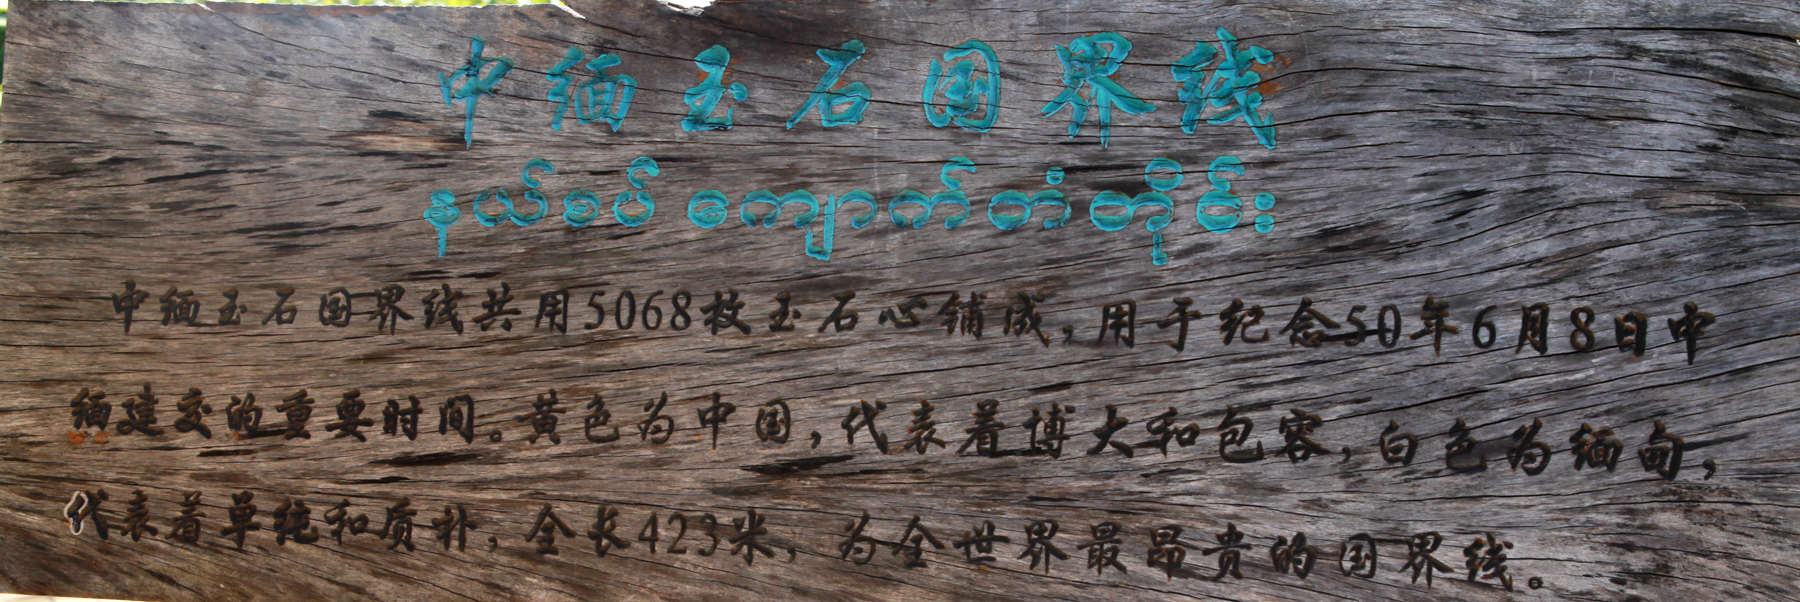 中缅玉石国界线
နယ်စပ် ကျောက်တံတိုင်း
中缅玉石国界线共用5068枚玉石心铺成,用于纪念50年6月8日中
缅建交的重要时间。黄色为中国,代表着博大和包容,白色为缅甸,
代表着单纯和质朴,全长423米,为全世界最昂贵的国界线。